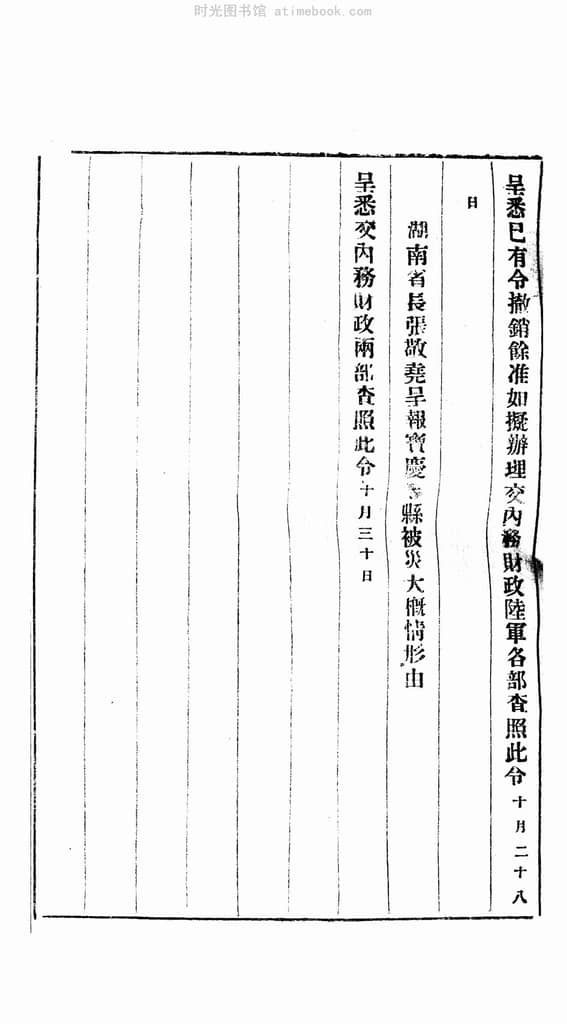 时光图书馆 atimebook.com
呈悉已有令撤銷餘准如擬辦理交內務財政陸軍各部查照此令十月二十八
日
湖南省長張敬堯呈報寶慶縣被災大概情形由
呈悉交內務財政兩部查照此令十月三十日